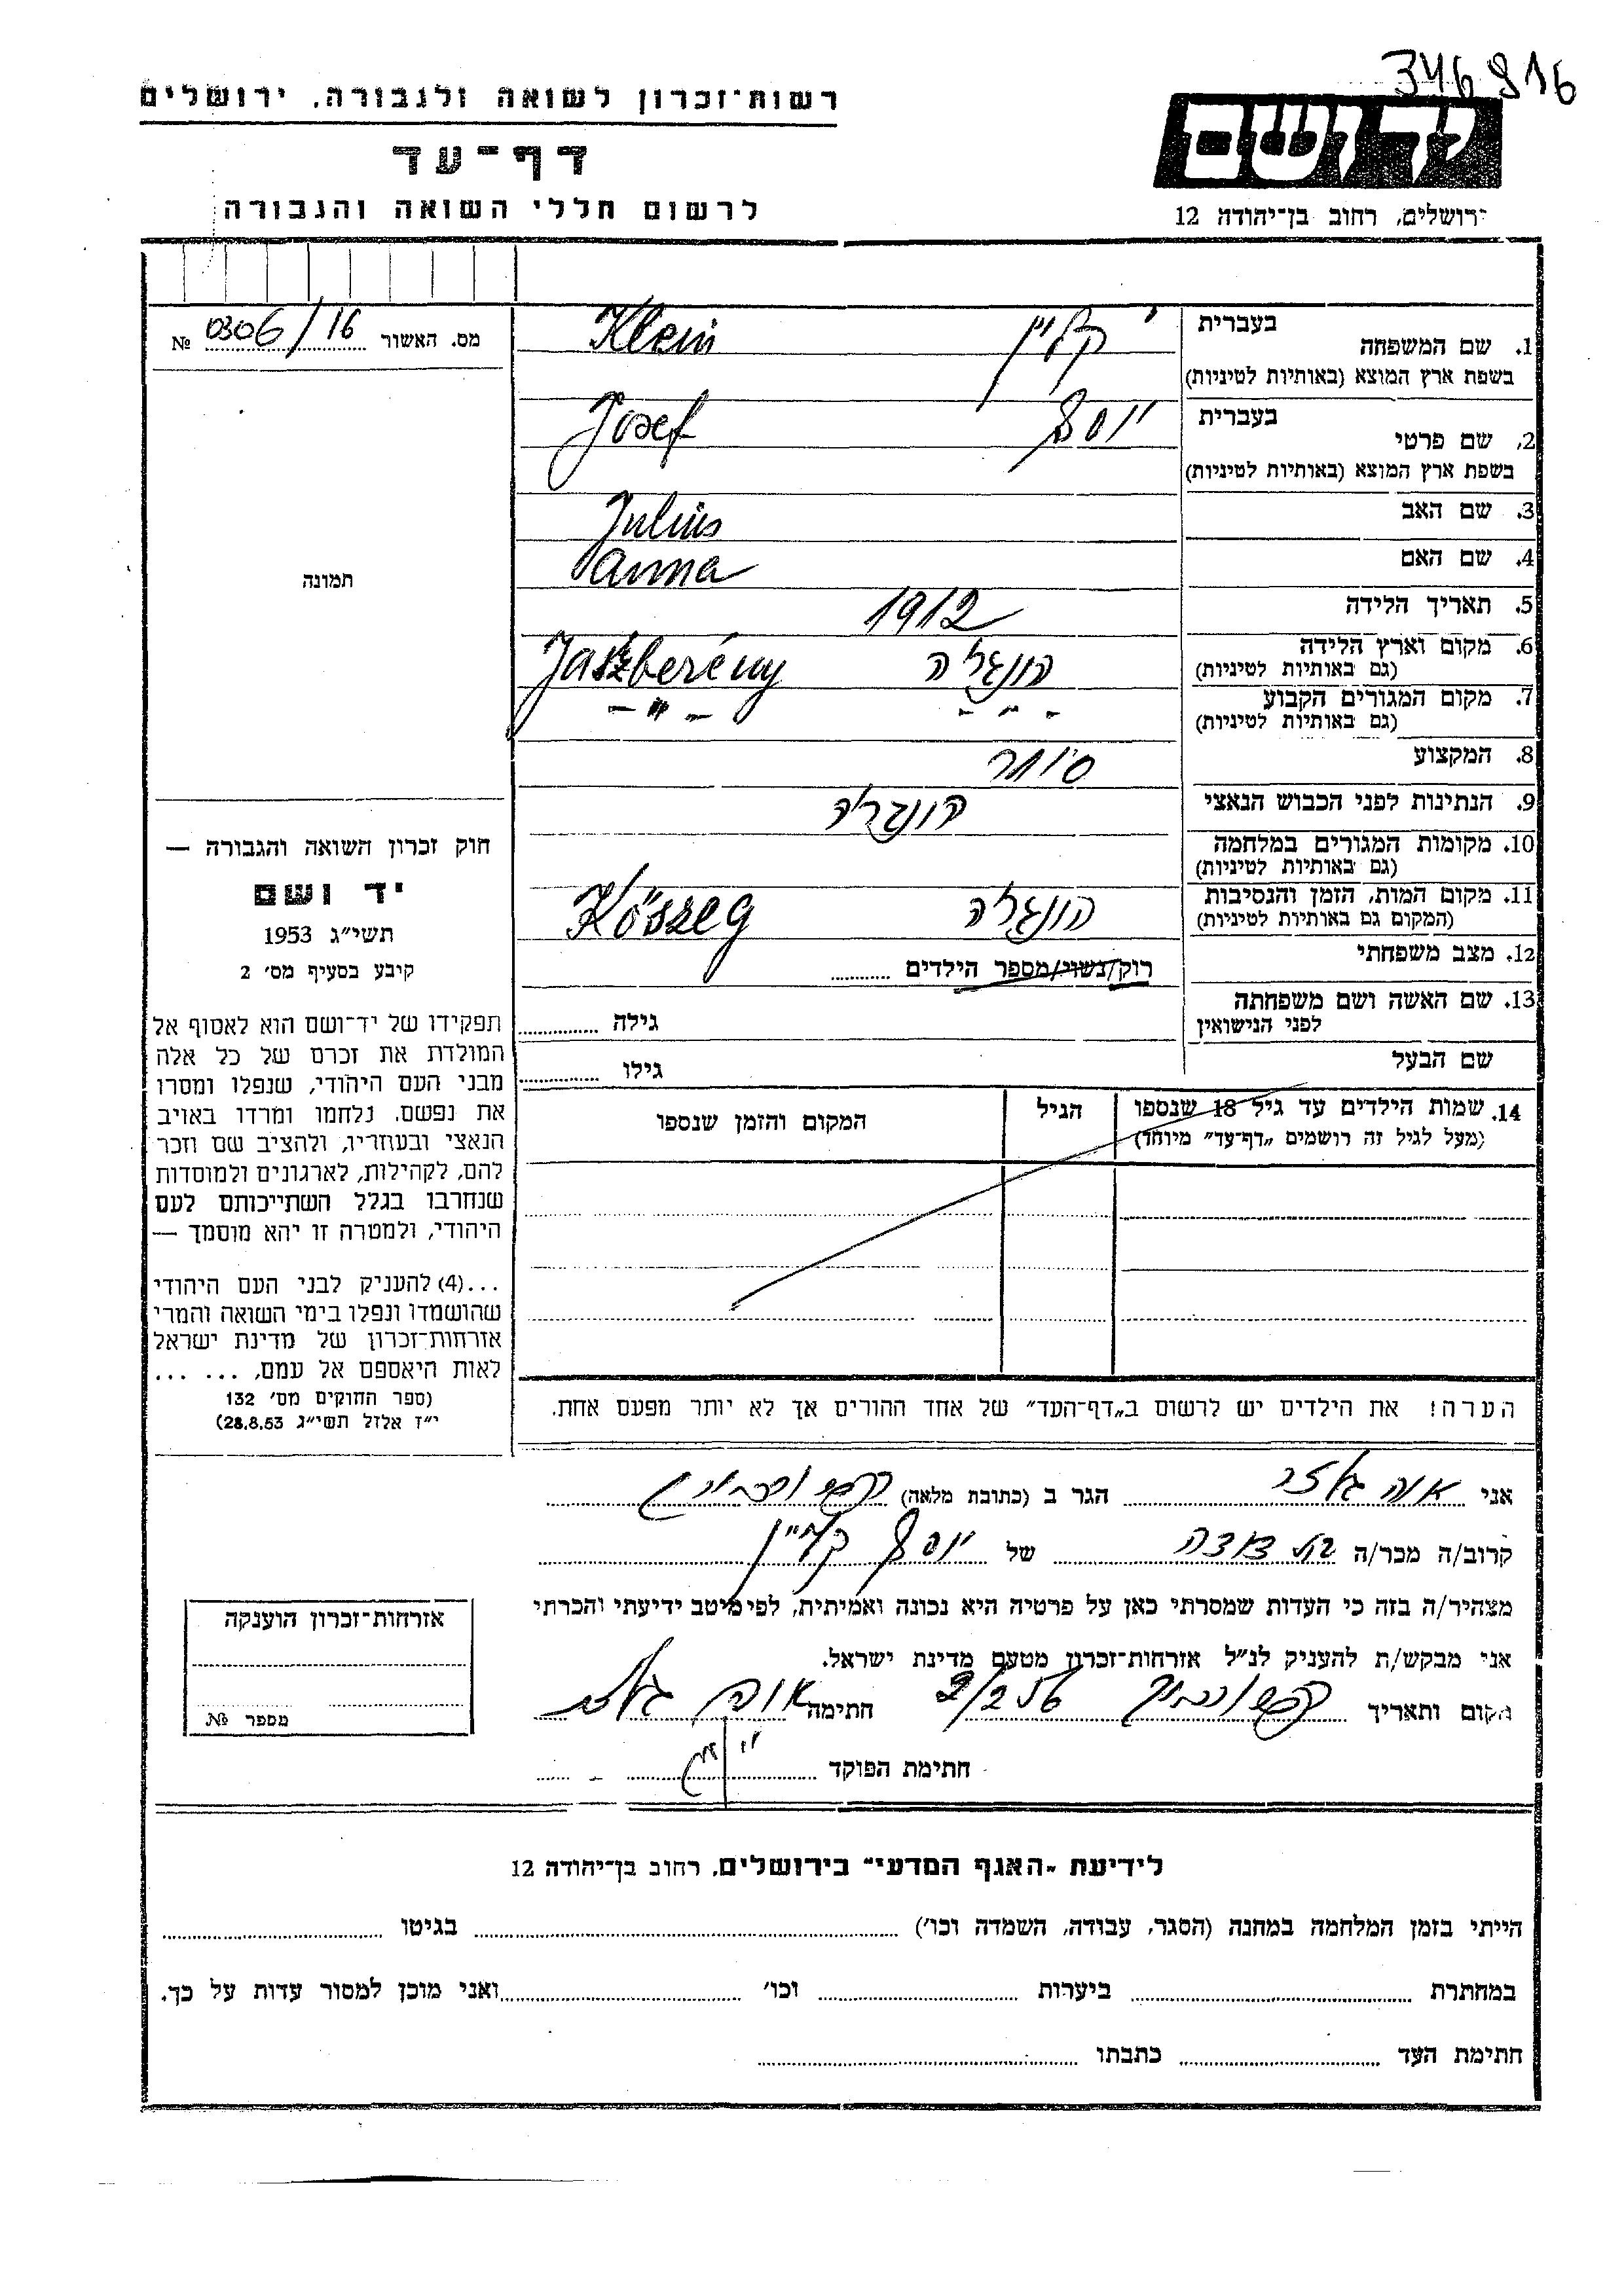 346916
רשות־זכרון לשואה ולגבורה, ירושלים
יד ושם
דף־עד
לרשום חללי השואה והגבורה
ירושלים, רחוב בן־יהודה 12
מס. האשור 0306/16 №
בעברית
1. שם המשפחה קליין Klein
בשפת ארץ המוצא (באותיות לטיניות)
בעברית
2. שם פרטי יוסף Josef
בשפת ארץ המוצא (באותיות לטיניות)
3. שם האב Julius
4. שם האם Anna
5. תאריך הלידה 1912
6. מקום וארץ הלידה הונגריה Jászberény
(גם באותיות לטיניות)
7. מקום המגורים הקבוע - " - - " -
(גם באותיות לטיניות)
8. המקצוע סוחר
9. הנתינות לפני הכבוש הנאצי הונגרית
10. מקומות המגורים במלחמה
(גם באותיות לטיניות)
11. מקום המות, הזמן והנסיבות הונגריה Kőszeg
(המקום גם באותיות לטיניות)
12. מצב משפחתי רוק/נשוי/מספר הילדים
13. שם האשה ושם משפחתה גילה
לפני הנישואין
שם הבעל גילו
14. שמות הילדים עד גיל 18 שנספו הגיל המקום והזמן שנספו
(מעל לגיל זה רושמים „דף־עד" מיוחד)
תמונה
חוק זכרון השואה והגבורה —
יד ושם
תשי״ג 1953
קיבע בסעיף מס׳ 2
תפקידו של יד־ושם הוא לאסוף אל
המולדת את זכרם של כל אלה
מבני העם היהודי, שנפלו ומסרו
את נפשם, נלחמו ומרדו באויב
הנאצי ובעוזריו, ולהציב שם וזכר
להם, לקהילות, לארגונים ולמוסדות
שנחרבו בגלל השתייכותם לעם
היהודי, ולמטרה זו יהא מוסמך —
...(4) להעניק לבני העם היהודי
שהושמדו ונפלו בימי השואה והמרי
אזרחות־זכרון של מדינת ישראל
לאות היאספם אל עמם, ... ...
(ספר החוקים מס׳ 132
י״ז אלול תשי״ג 28.8.53)
הערה! את הילדים יש לרשום ב„דף־העד" של אחד ההורים אך לא יותר מפעם אחת.
אני הגר ב (כתובת מלאה)
קרוב/ה מכר/ה בת דודה של יוסף קליין
מצהיר/ה בזה כי העדות שמסרתי כאן על פרטיה היא נכונה ואמיתית, לפי מיטב ידיעתי והכרתי
אני מבקש/ת להעניק לנ״ל אזרחות־זכרון מטעם מדינת ישראל.
מקום ותאריך 2/2 56 חתימה
חתימת הפוקד
אזרחות־זכרון הוענקה
מספר №
לידיעת „האגף המדעי" בירושלים, רחוב בן־יהודה 12
הייתי בזמן המלחמה במחנה (הסגר, עבודה, השמדה וכו׳) בגיטו
במחתרת ביערות וכו׳ ואני מוכן למסור עדות על כך.
חתימת העד כתבתו